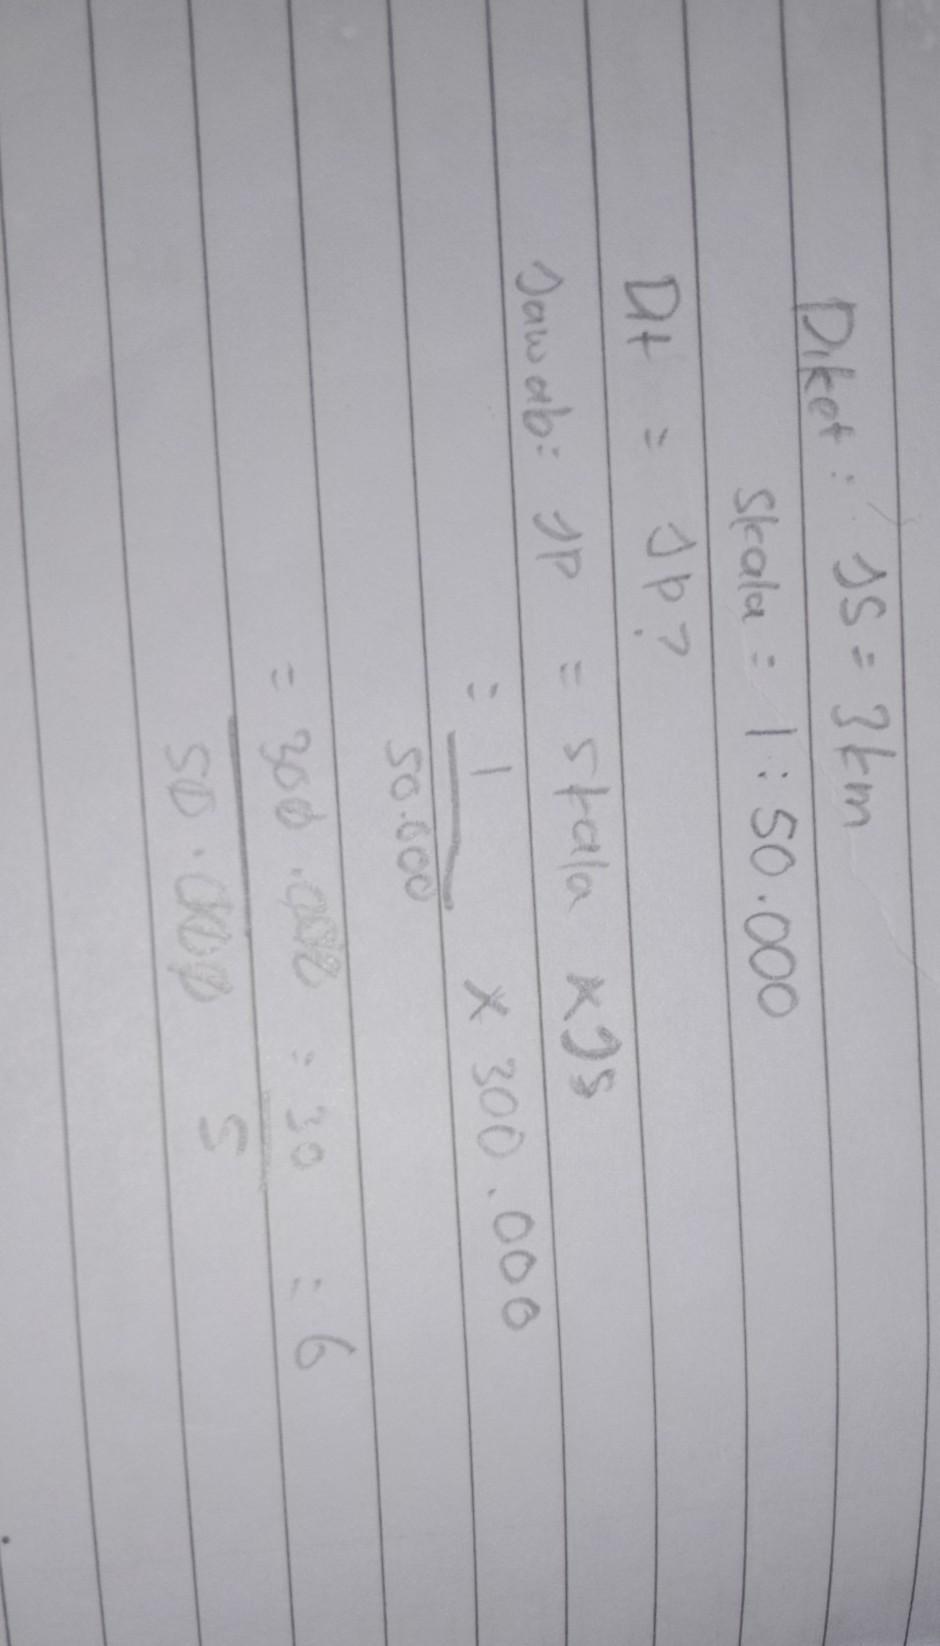 Diket : JS = 3 km
Skala = 1 : 50.000
Dit = Jp?
Jawab: JP = skala x Js
= 1 x 300.000
50.000
= 300.000 = 30 = 6
50.000 5